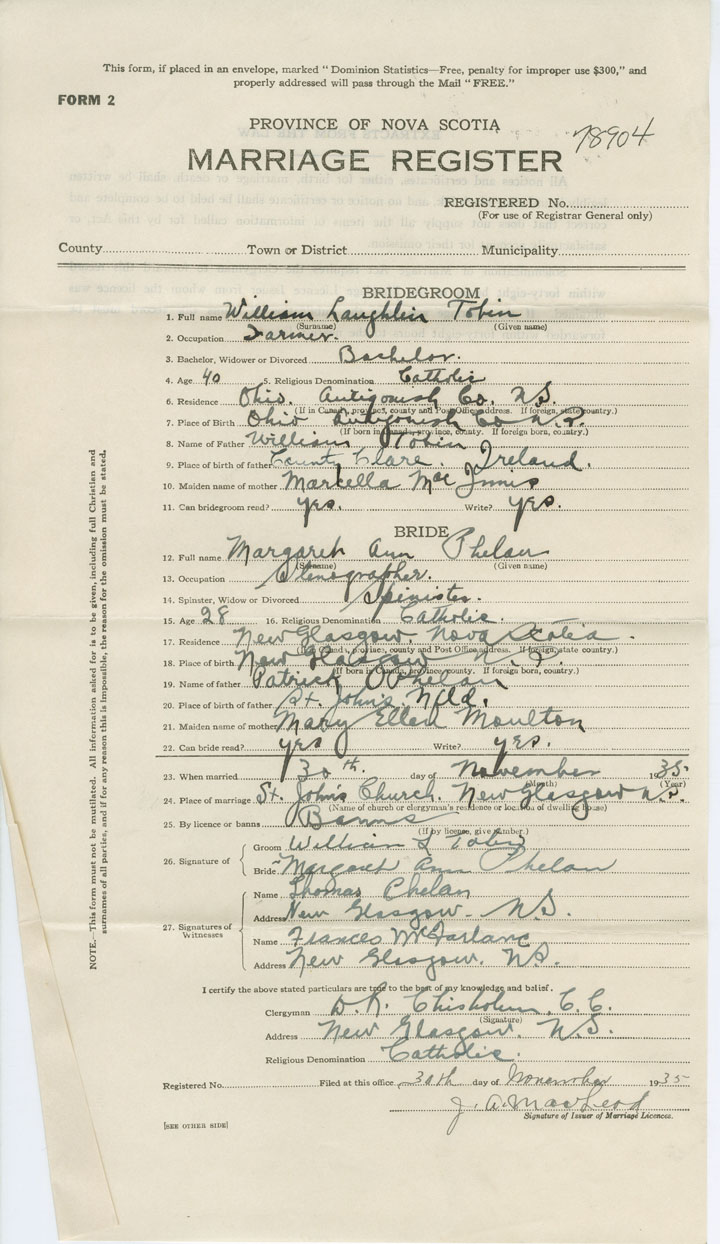 This form, if placed in an envelope, marked "Dominion Statistics—Free, penalty for improper use $300," and
properly addressed will pass through the Mail "FREE."
FORM 2
PROVINCE OF NOVA SCOTIA
78904
MARRIAGE REGISTER
REGISTERED No.
(For use of Registrar General only)
County Town or District Municipality
BRIDEGROOM
1. Full name William Laughlin Tobin
(Surname) (Given name)
2. Occupation Farmer.
3. Bachelor, Widower or Divorced Bachelor.
4. Age 40 5. Religious Denomination Catholic
6. Residence Ohio. Antigonish Co. N.S.
(If in Canada, province, county and Post Office address. If foreign, state country.)
7. Place of Birth Ohio Antigonish Co N.S.
(If born in Canada, province, county. If foreign born, country.)
8. Name of Father William Tobin
9. Place of birth of father County Clare. Ireland.
10. Maiden name of mother Marcella MacInnis
11. Can bridegroom read? yes. Write? yes.
BRIDE
12. Full name Margaret Ann Phelan
(Surname) (Given name)
13. Occupation Stenographer.
14. Spinster, Widow or Divorced Spinister.
15. Age 28 16. Religious Denomination Catholic.
17. Residence New Glasgow, Nova Scotia.
(If in Canada, province, county and Post Office address. If foreign, state country.)
18. Place of birth New Glasgow N.S.
(If born in Canada, province, county. If foreign born, country.)
19. Name of father Patrick Phelan
20. Place of birth of father St. John's. Nfld.
21. Maiden name of mother Mary Ellen Moulton
22. Can bride read? yes Write? yes.
23. When married 30th. day of November 1935.
(Month) (Year)
24. Place of marriage St. John's Church. New Glasgow N.S.
(Name of church or clergyman's residence or location of dwelling house)
25. By licence or banns Banns
(If by license, give number.)
26. Signature of
Groom William L Tobin
Bride Margaret Ann Phelan
27. Signatures of Witnesses
Name Thomas Phelan
Address New Glasgow. N.S.
Name Frances McFarlane
Address New Glasgow. N.S.
I certify the above stated particulars are true to the best of my knowledge and belief.
Clergyman D. R. Chisholm, C.C.
(Signature)
Address New Glasgow. N.S.
Religious Denomination Catholic.
Registered No. Filed at this office 30th day of November 1935
J. A. MacLeod
Signature of Issuer of Marriage Licences.
[SEE OTHER SIDE]
NOTE.—This form must not be mutilated. All information asked for is to be given, including full Christian and
surnames of all parties, and if for any reason this is impossible, the reason for the omission must be stated.